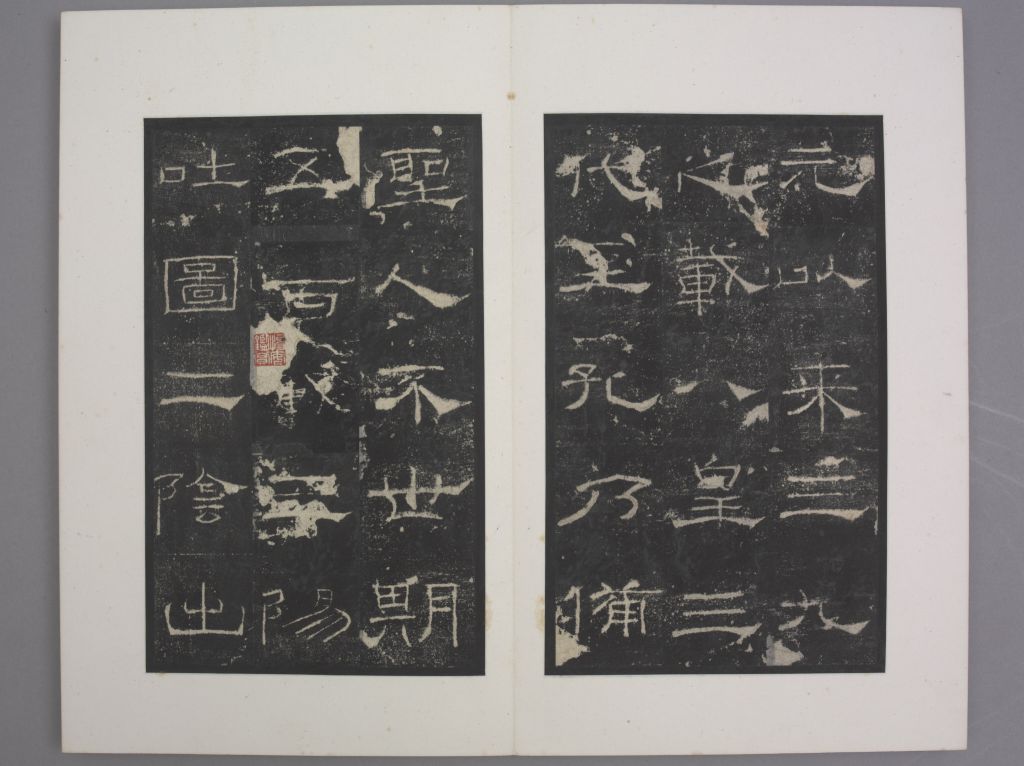 元以来三九
之載八皇三
代至孔乃備
聖人不世期
五百載三陽
吐圖二陰出